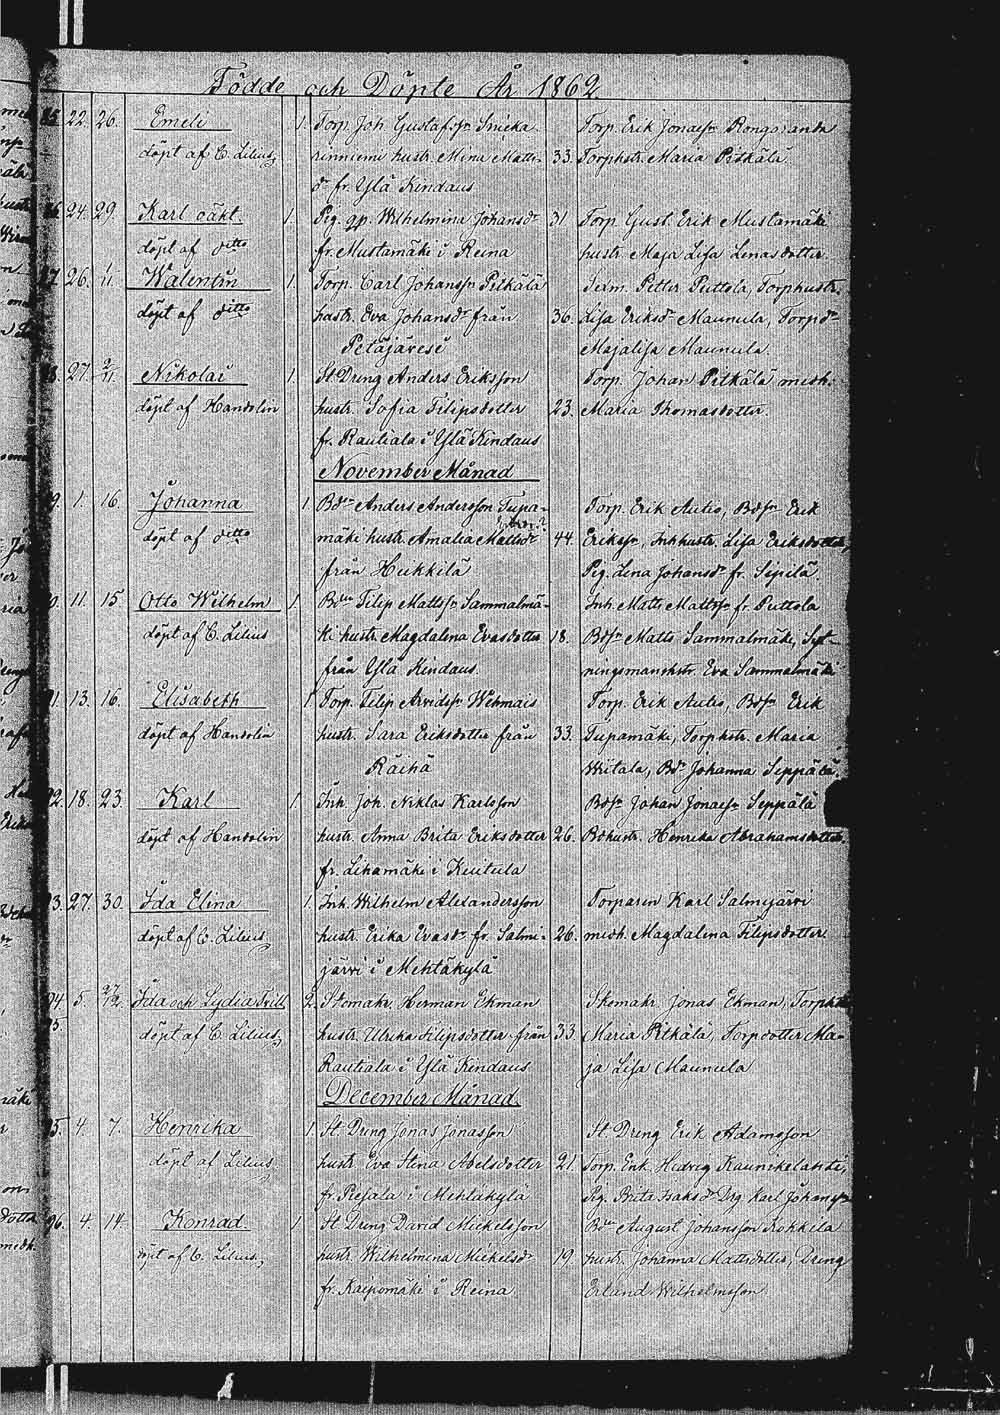 Födde och Döpte År 1862.
85. 22. 26. Emeli 1. Torp. Joh. Gustafss:n Snicka- Torp. Erik Jonaess:n Rongo
döpt af C. Lilius rinniemi hustr. Mina Matts- 33. Torphstr. Maria Pitkälä
d:r fr. Ylä Kindaus
24. 29. Karl oäkt. 1. Pig. Wilhelmina Johansd:r 31 Torp. Gust. Erik Mustamäki
döpt af ditto fr. Mustamäki i Reina hustr. Maja Lisa Lenasdotter.
26. 1/11. Walentin 1. Torp. Carl Johanss:n Pitkälä Petter Puttola, Torphustr.
döpt af ditto hustr. Eva Johansd:r från 36. Lisa Eriksd:r Maunula, Torpd:r
Petäjäresi Majalisa Maunula.
27. 2/11. Nikolai 1. St. Dreng Anders Eriksson Torp. Johan Pitkälä medh.
döpt af Handolin hustr. Sofia Filipsdotter 23. Maria Thomasdotter.
fr. Rautiala i Ylä Kindaus
November Månad
1. 16. Johanna 1. Bd:n Anders Andersson Tupa- Torp. Erik Autio, Bds:n Erik
döpt af ditto mäki hustr. Amalia Mattsd:r 44. Erikss:n, Inhhustr. Lisa Eriksdotter,
från Hukkila Pig. Lena Johansd:r fr. Sipilä.
11. 15. Otto Wilhelm 1. B:den Filip Mattss:n Sammalmä- Inh. Matts Mattss:n fr. Puttola
döpt af C. Lilius ki hustr. Magdalena Evasdotter 18. Bds:n Matts Sammalmäki,
från Ylä Kindaus. ningsmanshstr. Eva Sammalmäki
13. 16. Elisabeth 1. Torp. Filip Arvidss:n Wehmais Torp. Erik Autio, Bds:n Erik
döpt af Handolin hustr. Sara Eriksdotter från 33. Tupamäki, Torphstr. Maria
Räihä Witala, Bd:r Johanna Seppälä.
92. 18. 23. Karl 1. Inh. Joh. Niklas Karlsson Bds:n Johan Jonaess:n Seppälä
döpt af Handolin hustr. Anna Brita Eriksdotter 26. Bdhustr. Henrika Abrahamsdotter.
fr. Lihamäki i Kuitula
93. 27. 30. Ida Elina 1. Inh. Wilhelm Alexandersson Torparen Karl Salmijärvi
döpt af C. Lilius hustr. Erika Evasd:r fr. Salmi- 26. medh. Magdalena Filipsdotter
järvi i Mehtäkylä
94. 5. 27/12. Ida och Lydia Tvill 2. Skomakr. Herman Ekman Skomakr. Jonas Ekman, Torphstr
95. döpt af C. Lilius hustr. Ulrika Filipsdotter från 33. Maria Pitkälä, Torpdotter Ma-
Rautiala i Ylä Kindaus ja Lisa Maunula
December Månad.
95. 4. 7. Henrika 1. St. Dreng Jonas Jonasson St. Dreng Erik Adamsson
döpt af Lilius hustr. Eva Stina Abelsdotter 21. Torp. Enk. Hedvig Kauniskelahti,
fr. Pesala i Mehtäkylä Pig. Brita Isaksd:r Drg Karl Johanss:n
96. 4. 14. Konrad 1. St. Dreng David Mickelsson B:den August Johansson Kokkila
döpt af C. Lilius hustr. Wilhelmina Mickelsd:r 19. hustr. Johanna Mattsdotter, Dreng
fr. Kaipomäki i Reina Erland Wilhelmsson